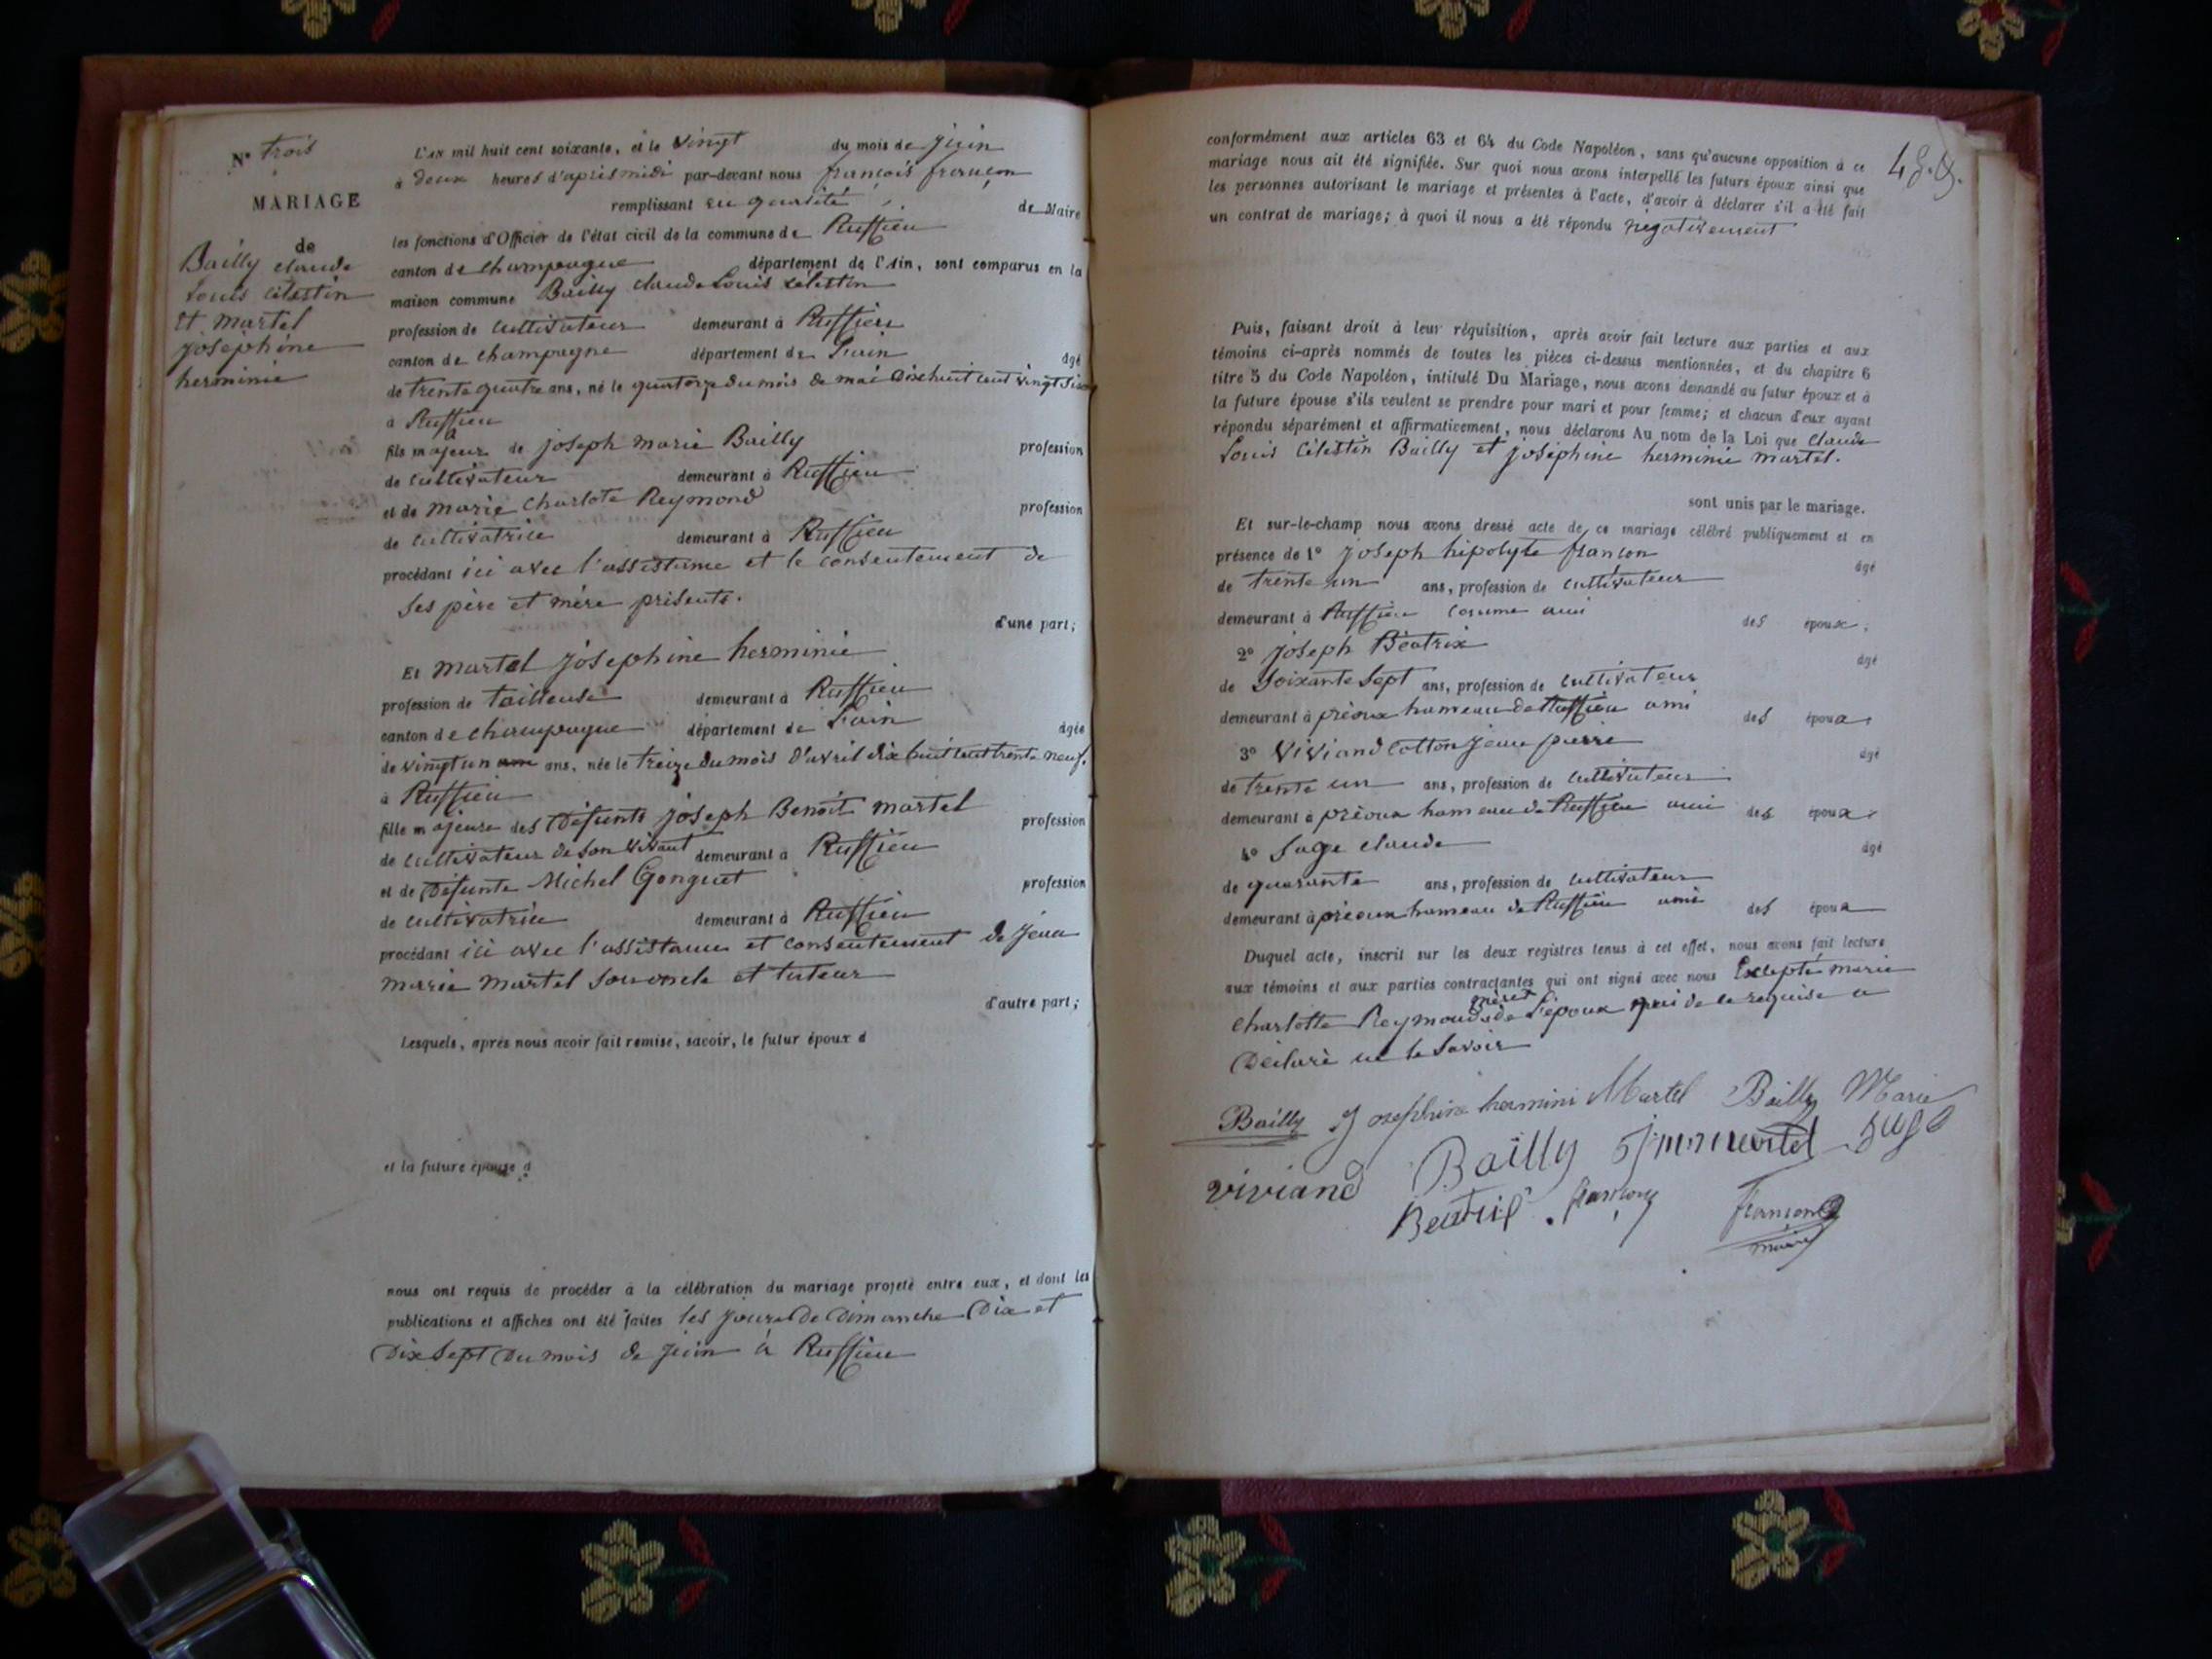 N° trois
MARIAGE
de
Bailly claude
Louis Célestin
et Martel
joséphine
herminie
L'AN mil huit cent soixante, et le vingt du mois de juin
à deux heures d'après midi par-devant nous françois françon
remplissant en qualité de Maire
les fonctions d'Officier de l'état civil de la commune de Ruffieu
canton de champagne département de l'Ain, sont comparus en la
maison commune Bailly claude Louis Célestin
profession de cultivateur demeurant à Ruffieu
canton de champagne département de L'ain âgé
de trente quatre ans, né le quatorze du mois de mai dix huit cent vingt six
à Ruffieu
fils majeur de joseph marie Bailly profession
de cultivateur demeurant à Ruffieu
et de marie Charlote Reymond profession
de cultivatrice demeurant à Ruffieu
procédant ici avec l'assistance et le consentement de
ses père et mère présents.
d'une part;
Et martel joséphine herminie
profession de tailleuse demeurant à Ruffieu
canton de champagne département de L'ain âgée
de vingt un ans, née le treize du mois d'avril dix huit cent trente neuf.
à Ruffieu
fille majeure des défunts joseph Benoît martel profession
de cultivateur de son vivant demeurant à Ruffieu
et de défunte Michel Gonguet profession
de cultivatrice demeurant à Ruffieu
procédant ici avec l'assistance et consentement de jean
marie martel son oncle et tuteur
d'autre part;
Lesquels, après nous avoir fait remise, savoir, le futur époux d
et la future épouse d
nous ont requis de procéder à la célébration du mariage projeté entre eux, et dont les
publications et affiches ont été faites les jours de dimanche dix et
dix sept du mois de juin à Ruffieu
conformément aux articles 63 et 64 du Code Napoléon, sans qu'aucune opposition à ce
mariage nous ait été signifiée. Sur quoi nous avons interpellé les futurs époux ainsi que
les personnes autorisant le mariage et présentes à l'acte, d'avoir à déclarer s'il a été fait
un contrat de mariage; à quoi il nous a été répondu négativement
Puis, faisant droit à leur réquisition, après avoir fait lecture aux parties et aux
témoins ci-après nommés de toutes les pièces ci-dessus mentionnées, et du chapitre 6
titre 5 du Code Napoléon, intitulé Du Mariage, nous avons demandé au futur époux et à
la future épouse s'ils veulent se prendre pour mari et pour femme; et chacun d'eux ayant
répondu séparément et affirmativement, nous déclarons Au nom de la Loi que claude
Louis Célestin Bailly et joséphine herminie martel.
sont unis par le mariage.
Et sur-le-champ nous avons dressé acte de ce mariage célébré publiquement et en
présence de 1° joseph hipolyte françon âgé
de trente un ans, profession de cultivateur
demeurant à Ruffieu comme ami des époux;
2° joseph Béatrix âgé
de Soixante Sept ans, profession de cultivateur
demeurant à prèoux hameau de Ruffieu ami des époux
3° Viviand Cotton jean pierre âgé
de trente un ans, profession de cultivateur
demeurant à prèoux hameau de Ruffieu ami des époux
4° Suge claude âgé
de quarante ans, profession de cultivateur
demeurant à prèoux hameau de Ruffieu ami des époux
Duquel acte, inscrit sur les deux registres tenus à cet effet, nous avons fait lecture
aux témoins et aux parties contractantes qui ont signé avec nous Excepté marie
Charlotte Reymond mère de L'époux qui de le requise a
Déclaré ne le savoir
Bailly Josephine hermini Martel Bailly Marie
viviand Bailly Martel Suge
Beatrix françon françon
maire